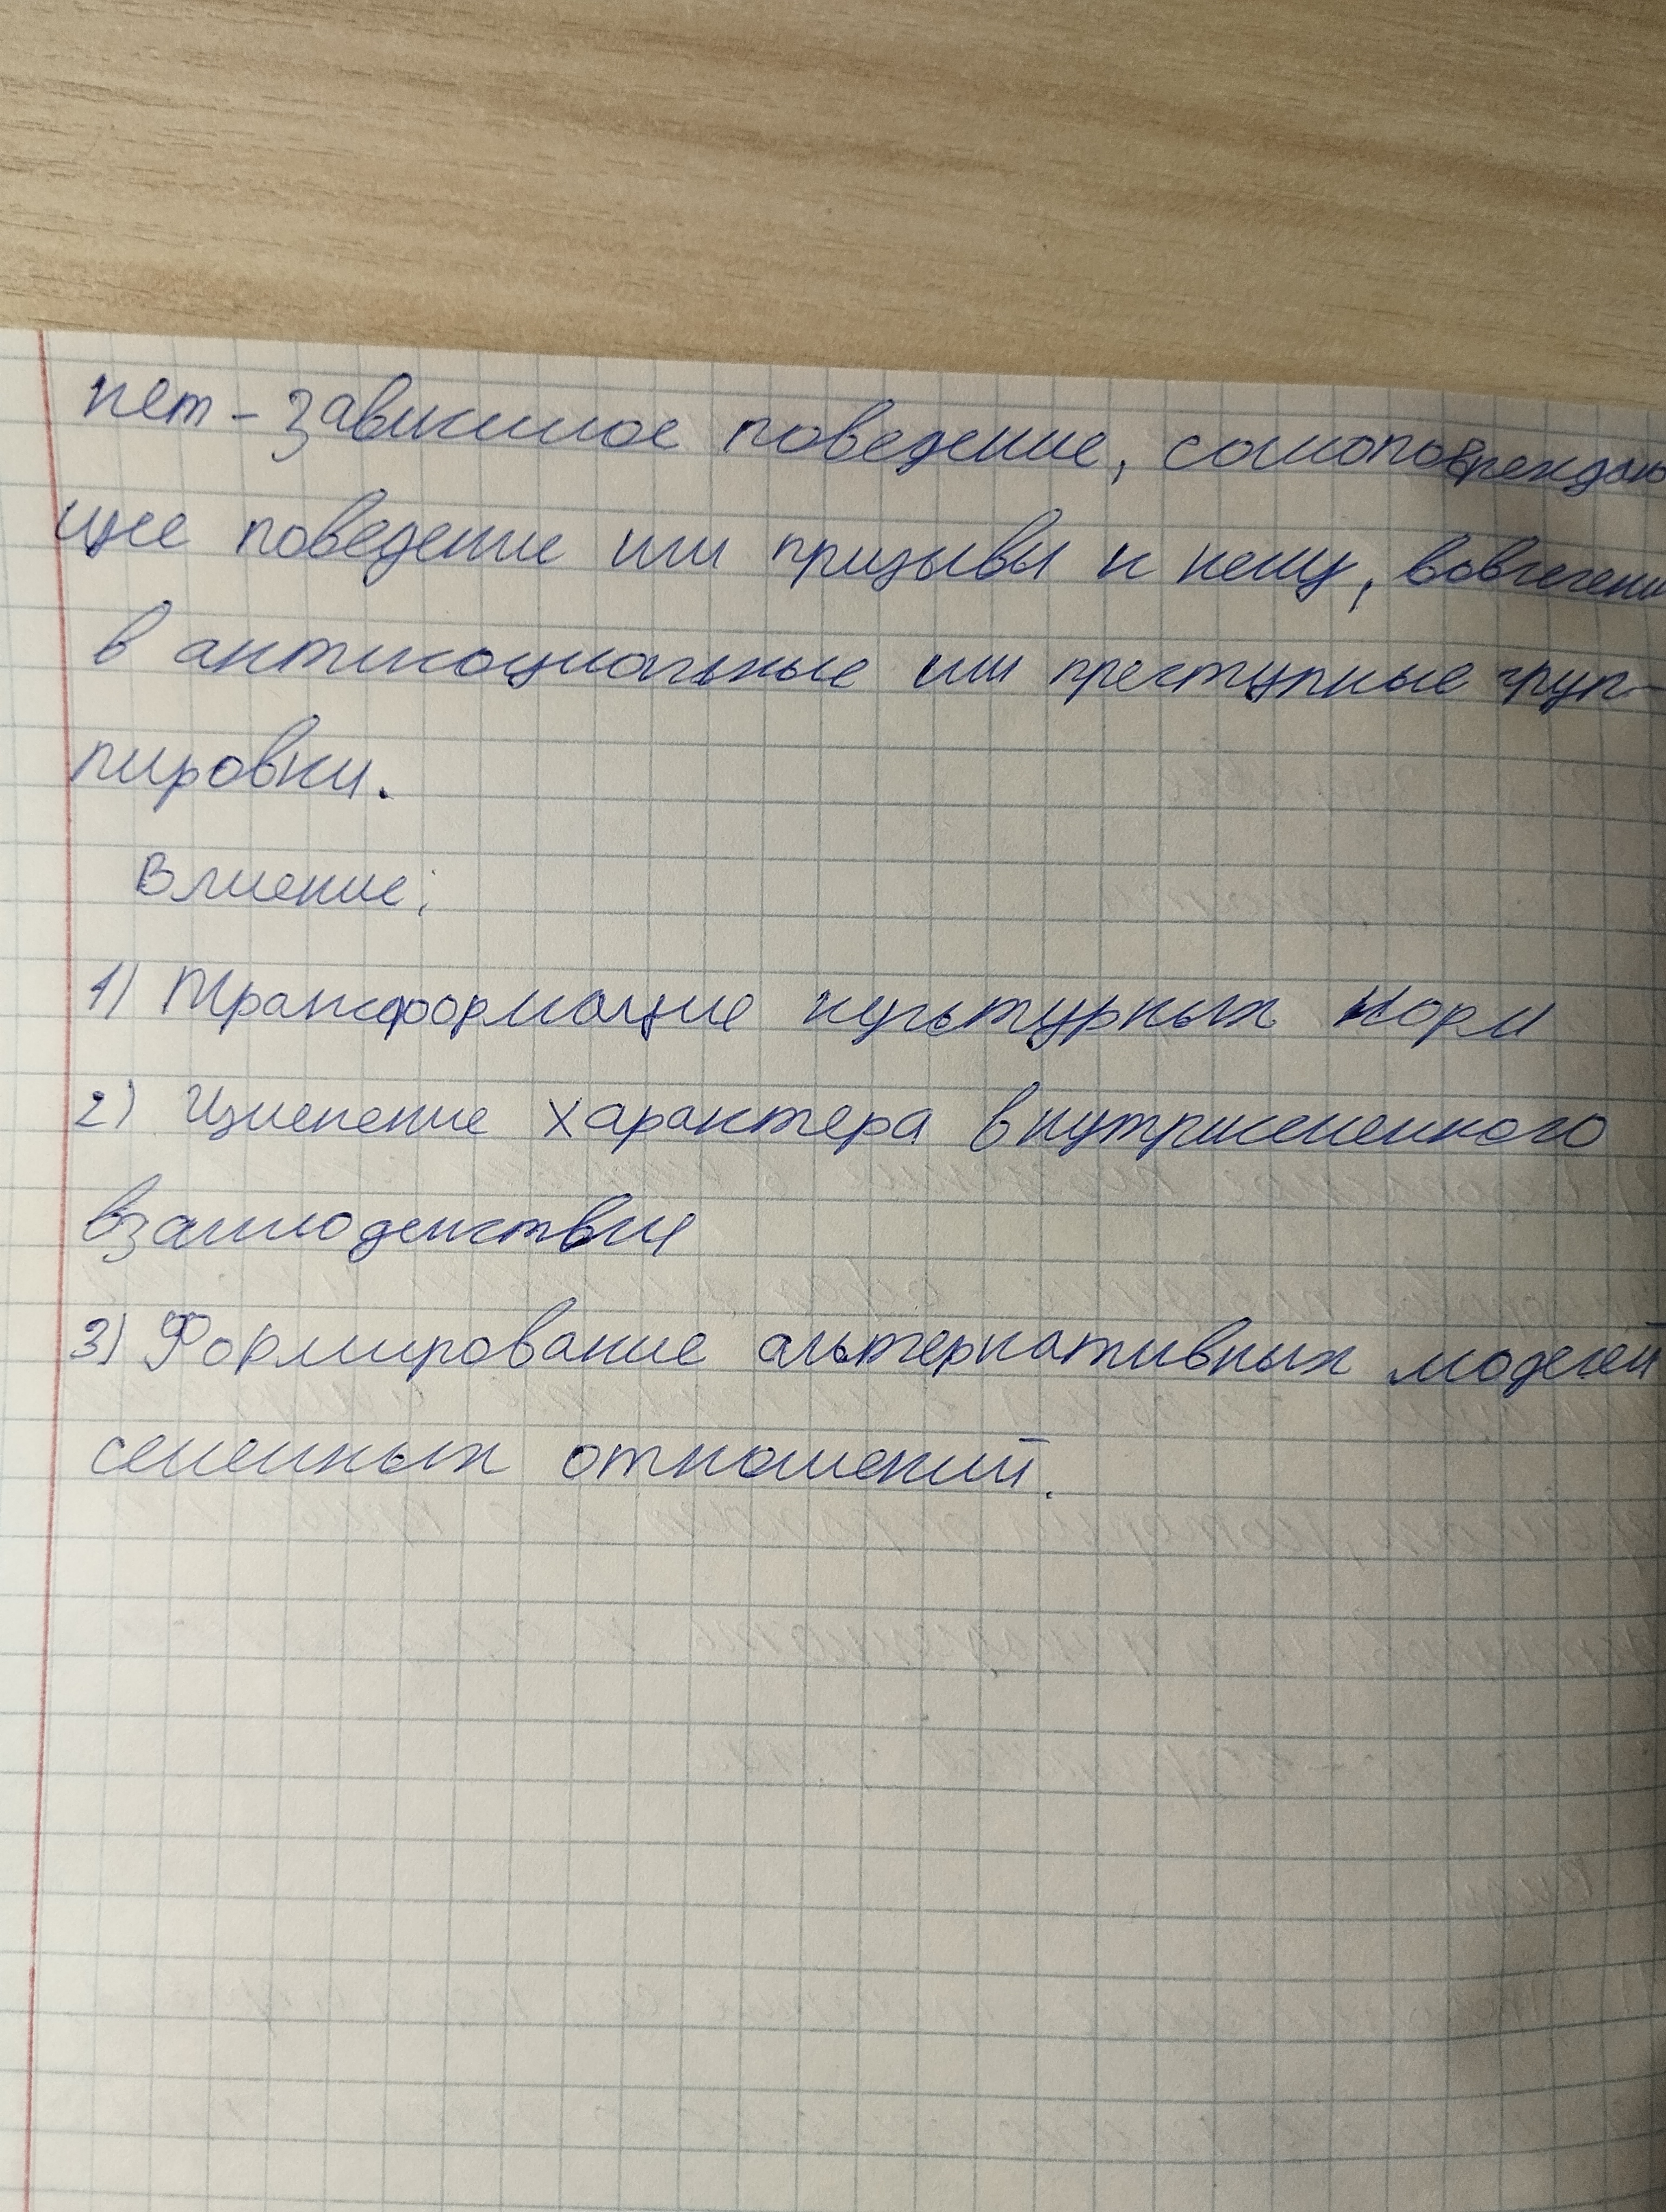 нет-зависимое поведение, самоповреждаю
щее поведение или призывы к нему, вовлечени
в антисоциальные или преступные груп-
пировки.
Влиение:
1) Трансформация культурных норм
2) Изменение характера внутрисеменного
взаимодействия
3) Формирование альтернативных моделей
семенных отношений.